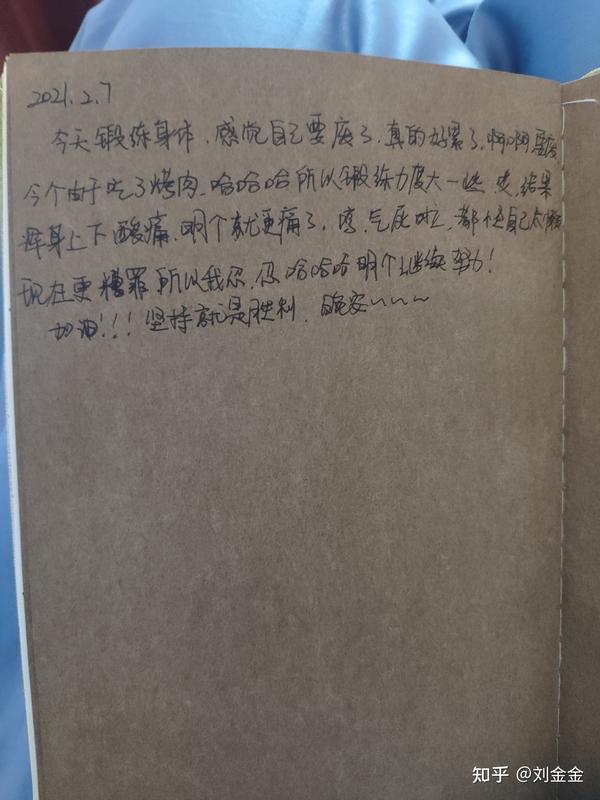 2021.2.7
今天锻炼身体，感觉自己要废了，真的好累了，啊啊
今个由于吃了烤肉，哈哈哈所以锻炼力度大一些，结果
浑身上下酸痛，明个就更痛了，气屁啦，都怪自己太
现在更糟罪所以我忍，忍哈哈哈明个继续努力！
加油！！！坚持就是胜利，晚安~~~~
知乎 @刘金金